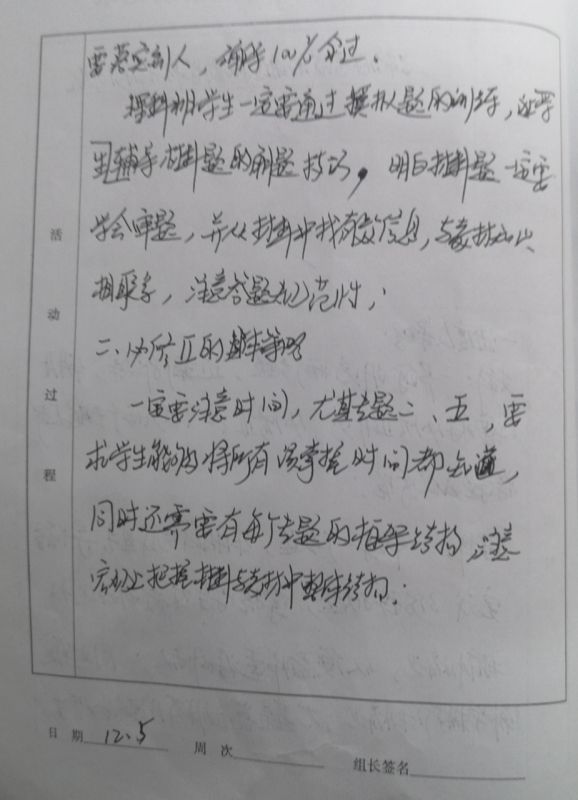 要落实到人，确保100%分过。
理科班学生一定要通过模拟题的训练，让学
生辅导材料题的解题技巧，明白材料题一定要
学会审题，并从材料中找有效信息，与教材知识
相联系，注意答题规范性；
二、必修II的
一定要注意时间，尤其专题二、五，要
求学生能够将所有该掌握时间都知道，
同时还需要有每个专题的框架结构，注意
宏观上把握材料与教材中整体结构。
活动过程
日 期 12.5 周 次 组长签名